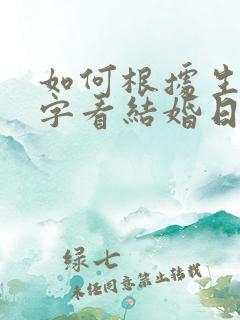 如何根据生
字看結婚日
绿七
未任同意禁止转载